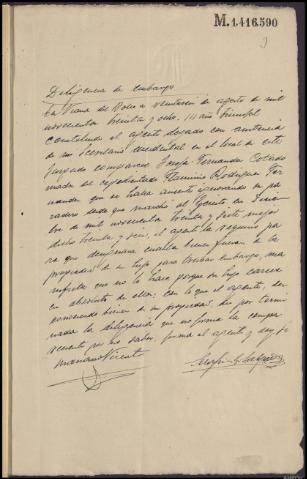 M.1.416.590
Diligencia de embargo
En Viana del Bolo a veintiseis de agosto de mil
novecientos treinta y ocho. III año triunfal
Constituido el agente dejado con asistencia
de mi Secretario accidental en el local de este
Juzgado comparece Josefa Fernandez
madre del expedientado Flaminio Rodriguez Fer
nandez que se halla ausente ignorando su pa
radero desde que marchó al
bre de mil novecientos treinta y
treinta y seis, el agente la requirió pa
ra que designara cuantos bienes fueran de la
propiedad de su hijo para trabar embargo, ma
nifiesta que no lo hace porque su hijo carece
en absoluto de ellos, con lo que el agente, des
conociendo bienes de su propiedad, dio por termi
nada la diligencia que no firma la compa
reciente por no saber, firma el agente y doy fe
Mariano Vicente